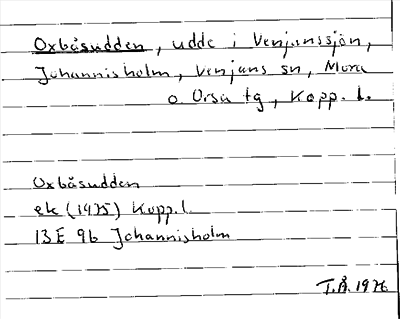 Oxbåsudden, udde i Venjanssjön,
Johannisholm, Venjans sn, Mora
o. Orsa tg, Kopp. l.
Oxbåsudden
ek (1975) Kopp. l.
13E 9b Johannisholm
T.Å. 1976